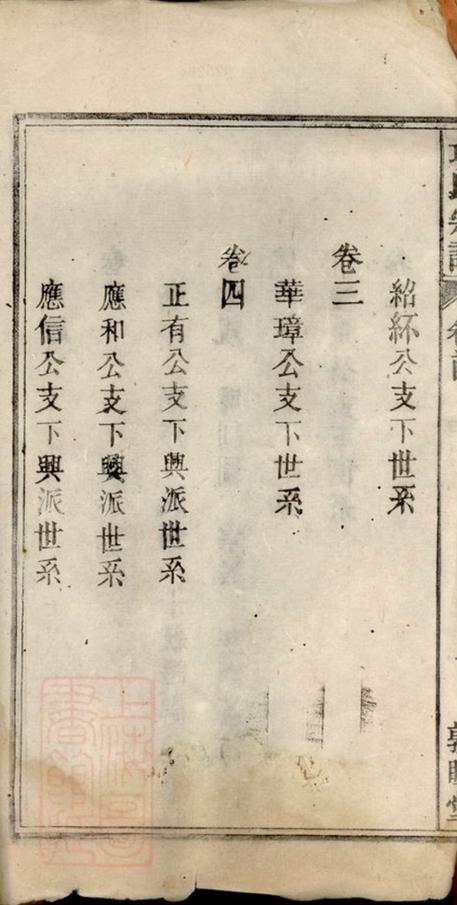 紹紑公支下世系
卷三
華璋公支下世系
卷四
正有公支下興派世系
應和公支下興派世系
應信公支下興派世系
敦睦堂